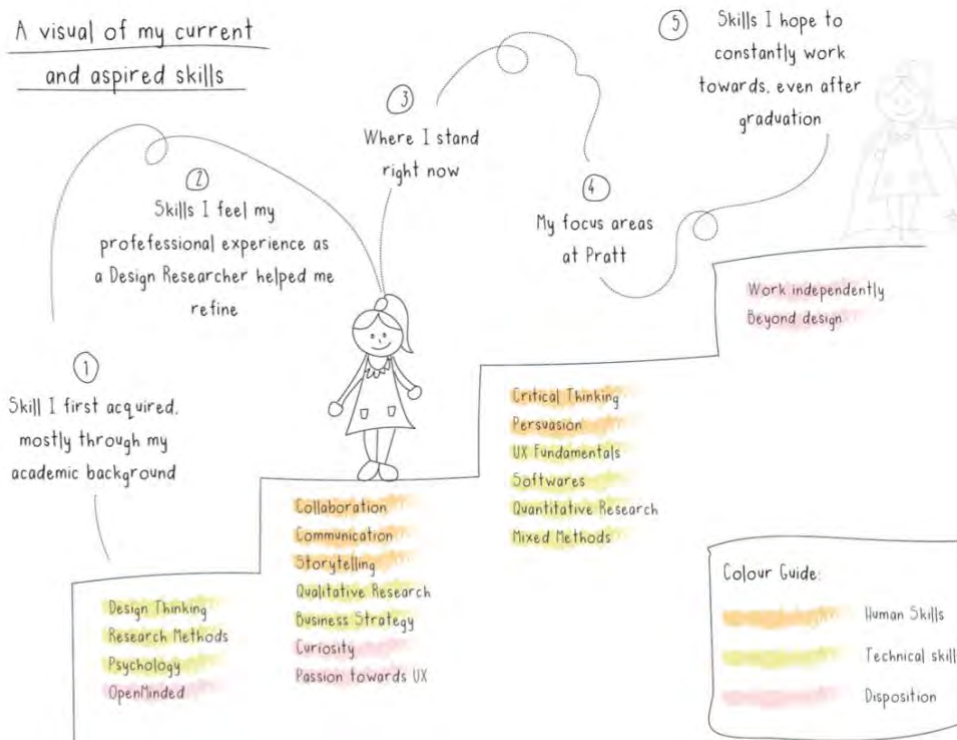 A visual of my current
and aspired skills
1
Skill I first acquired,
mostly through my
academic background
2
Skills I feel my
profefessional experience as
a Design Researcher helped me
refine
3
Where I stand
right now
4
My focus areas
at Pratt
5
Skills I hope to
constantly work
towards, even after
graduation
Design Thinking
Research Methods
Psychology
OpenMinded
Collaboration
Communication
Storytelling
Qualitative Research
Business Strategy
Curiosity
Passion towards UX
Critical Thinking
Persuasion
UX Fundamentals
Softwares
Quantitative Research
Mixed Methods
Work independently
Beyond design
Colour Guide:
Human Skills
Technical skill
Disposition